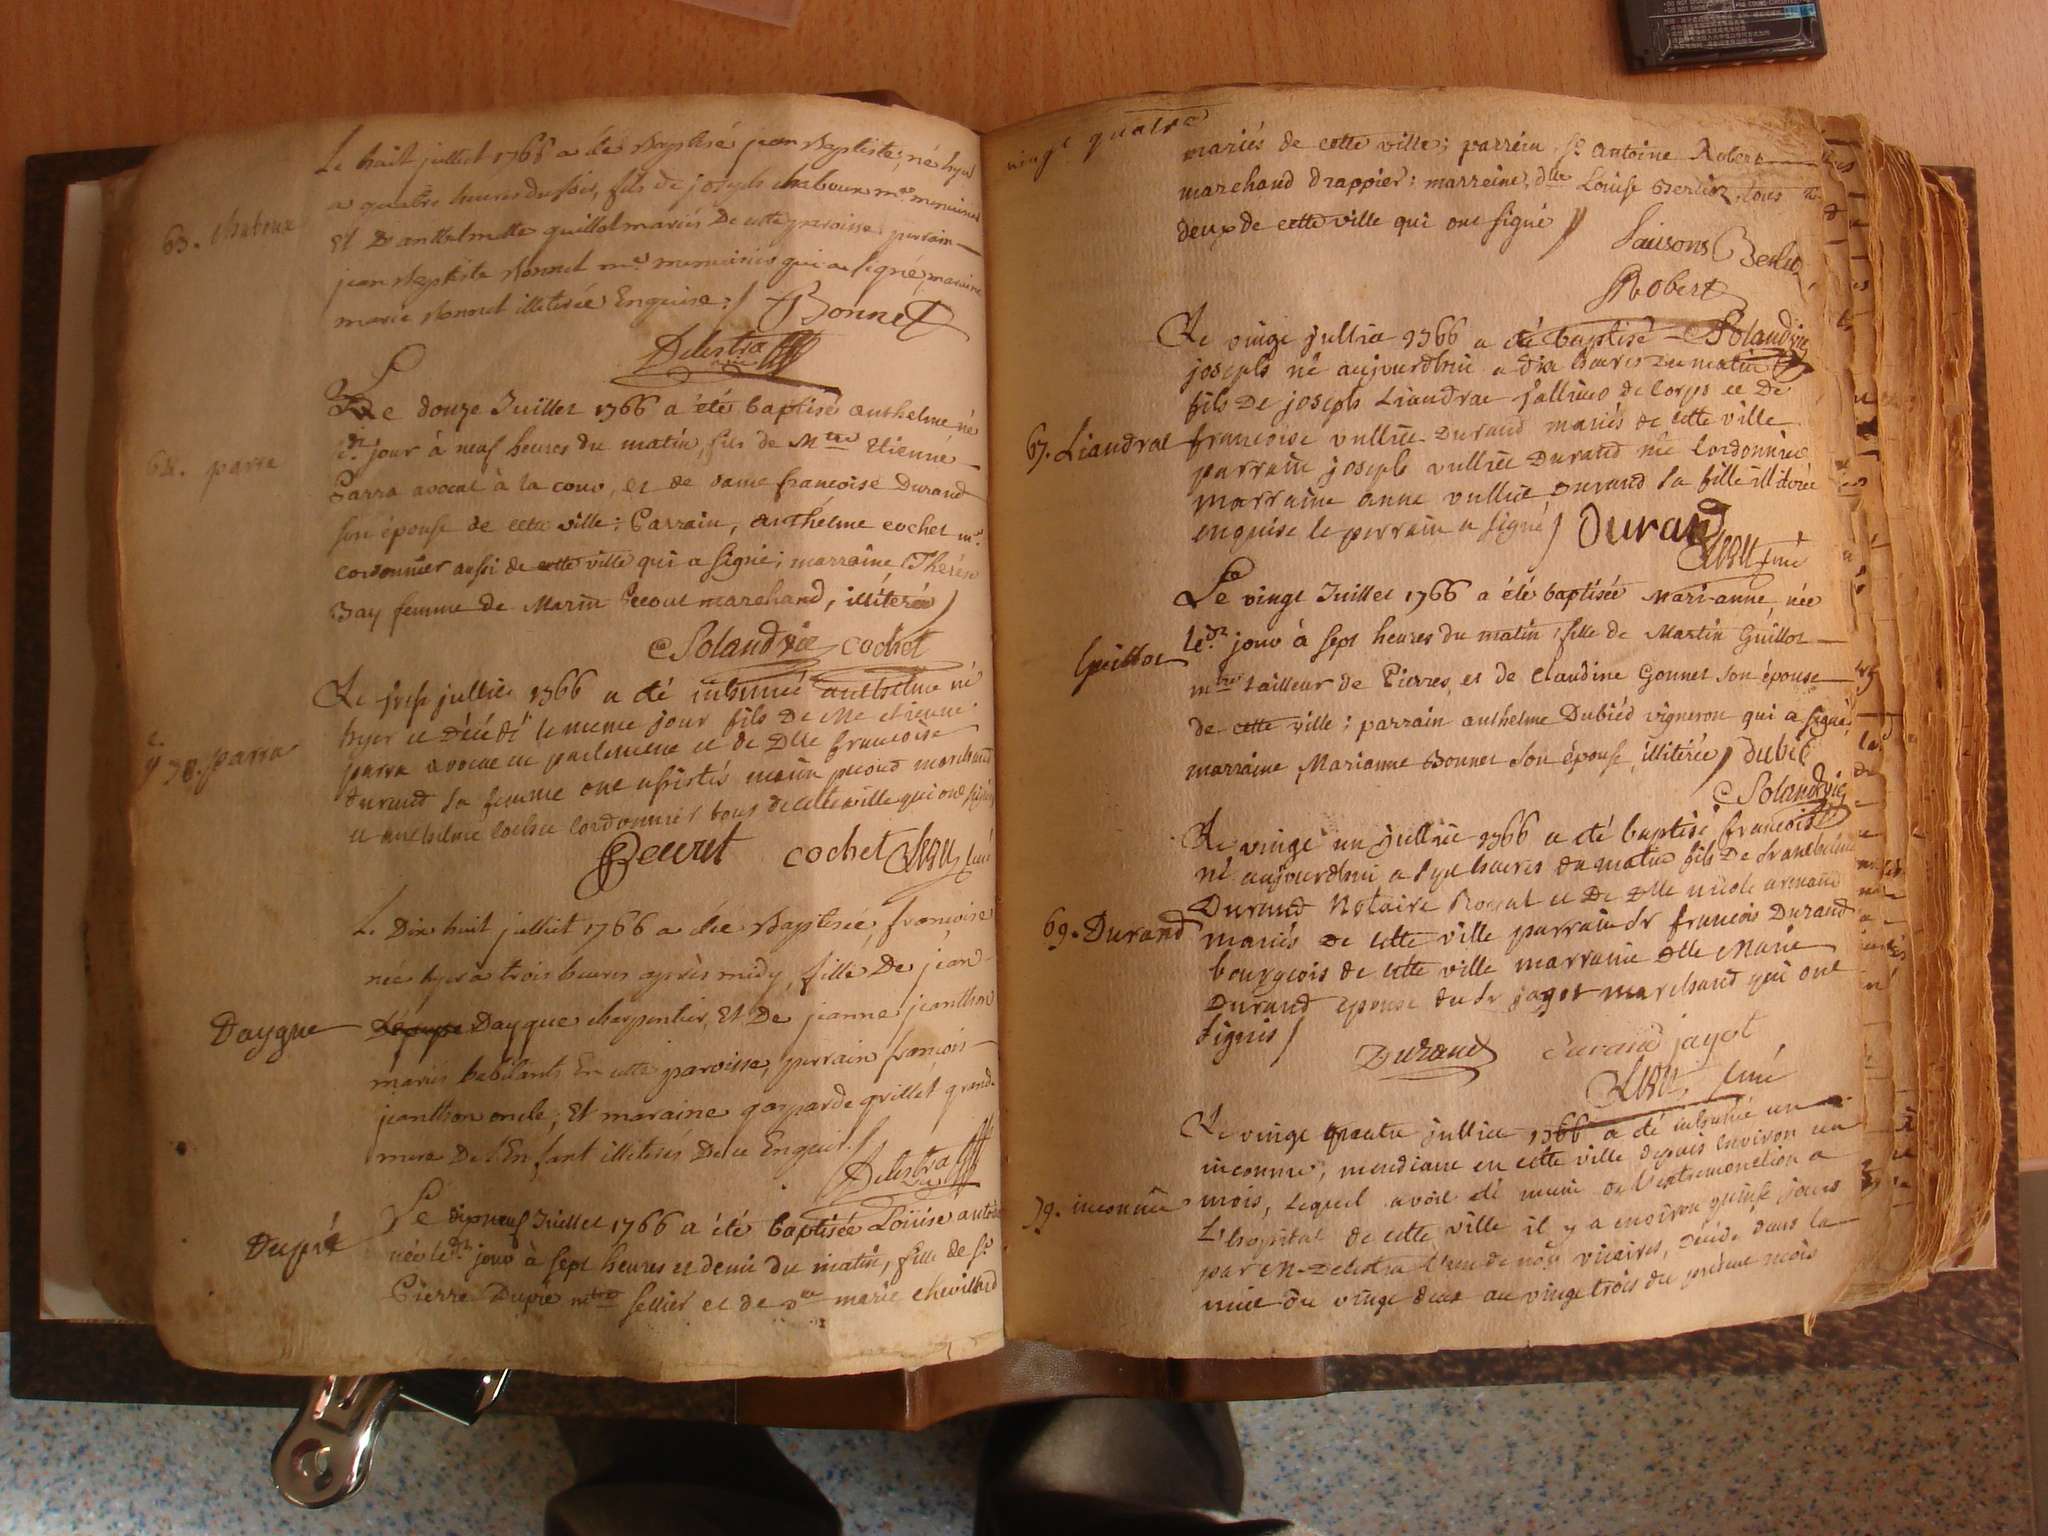 63. chaboux
Le huit juillet 1766 a été Baptisé jean Baptiste, né hyer
a quatre heures du soir, fils de joseph chaboux me menuisier
Et D'anthelmette guillot mariés De cette paroisse, parrain
jean Baptiste Bonnet me menuisier qui a signé, maraine
marie Bonnet illiterée Enquise ./ Bonnet
Delestra
64. parra
Le douze Juillet 1766 a été baptisé anthelme né
ledt jour à neuf heures du matin, fils de Mtre Etienne
Parra avocat à la cour, et de dame francoise Durand
son épouse de cette ville; Parrain, anthelme cochet me
cordonnier aussi de cette ville qui a signé; marraine Thérèse
Bay femme de Marin Pecout marchand, illiterée /
Solandrie cochet
78. parra
Le juillet 1766 a été inhumé anthelme né
hyer et décédé le meme jour fils De Me etienne
parra avocat en parlement et de Dlle francoise
Durand sa femme ont assistés marin pecoud marchand
et anthelme cochet cordonnier tous de cette ville qui ont signés
Pecout cochet curé
Daygue
Le Dix huit juillet 1766 a été Baptisée, francoise
née hyer a trois heures après midy, fille De jean
Daygue charpentier, Et De jeanne jeanthon
mariés habitants En cette paroisse, parrain francois
jeanthon oncle, Et maraine gasparde grillet grande
mere De l'Enfant illiterés De ce Enquis ./.
Delestra
Dupré
Le dixneuf Juillet 1766 a été baptisée Louise
née ledt jour à sept heures et demi du matin, fille de Sr
Pierre Dupré mtre sellier et de Dlle marie chevillard
vingt quatre
mariés de cette ville; parrain, Sr antoine Robert
marchand drappier; marreine, dlle Louise Berlioz, tous
deux de cette ville qui ont signé //
Robert
67. Liandrat
Le vingt juillet 1766 a été baptisé Solandrie
joseph né aujourdhui a dix heures du matin
fils De joseph Liandrat de Corps et De
francoise vulliet Durand mariés de cette ville
parrain joseph vulliet Durand me Cordonnier
Marraine anne vulliet Durand sa fille illiterée
enquise le parrain a signé / Durand
curé
Guillot
Le vingt Juillet 1766 a été baptisée Mari-anne, née
ledt jour à sept heures du matin, fille de Martin Guillot
mtre tailleur de Pierres, et de Claudine Gonnet son épouse
de cette ville; parrain anthelme Dubied vigneron qui a signé,
marraine, Marianne Bonnet son épouse, illiterée /
Solandrie
69. Durand
Le vingt un juillet 1766 a été baptisé francois
né aujourdhui a heures du matin fils De
Durand Notaire Royal et De Dlle nicole armand
mariés De cette ville parrain Sr francois Durand
bourgeois de cette ville marraine Dlle Marie
Durand epouse du Sr jagot marchand qui ont
signés /
Durand durand jagot
curé
79. inconnu
Le vingt quatre juillet 1766 a été inhumé un
inconnu, mendiant en cette ville depuis environ un
mois, Lequel avoit été muni de l'extremonction a
L'hopital de cette ville il y a environ quinse jours
par Mr Delestra l'un de nos vicaires, décédé dans la
nuit du vingt deux au vingt trois du présent mois